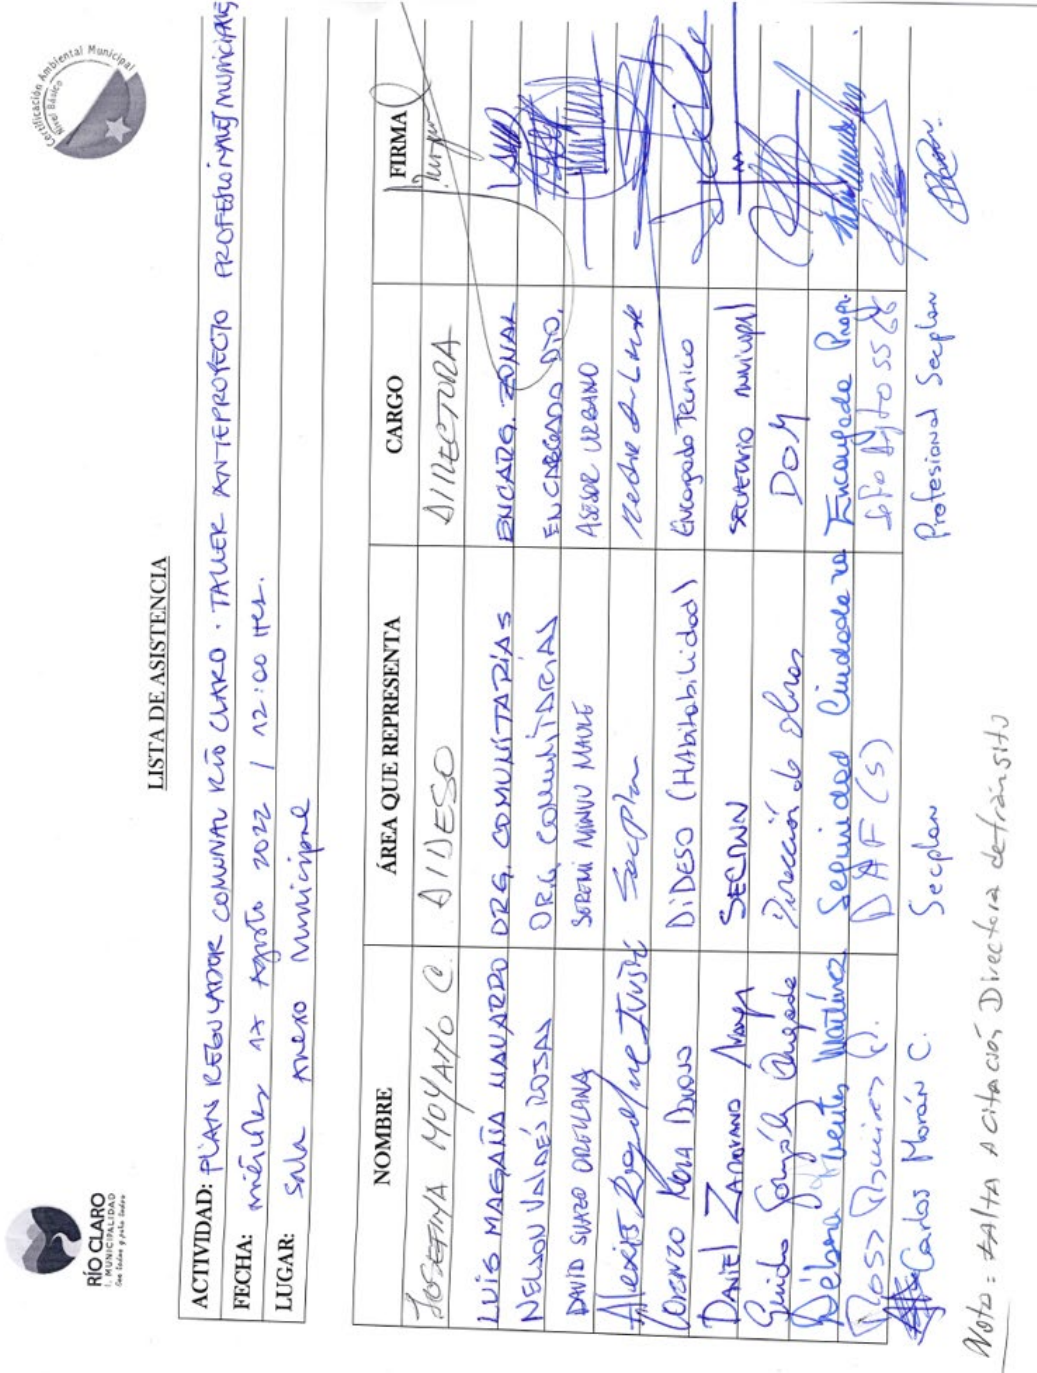 RÍO CLARO
I. MUNICIPALIDAD
Con todos y para todos
Certificación Ambiental Municipal
Nivel Básico
LISTA DE ASISTENCIA
ACTIVIDAD: PLAN REGULADOR COMUNAL RÍO CLARO · TALLER ANTEPROYECTO PROFESIONALES MUNICIPALES
FECHA: miércoles 17 Agosto 2022 / 12:00 Hrs.
LUGAR: Sala Anexo Municipal
NOMBRE ÁREA QUE REPRESENTA CARGO FIRMA
JOSEFINA MOYANO C. DIDESO DIRECTORA
LUIS MAGAÑA NAVARRO ORG. COMUNITARIAS ENCARG. ZONAL
NELSON VALDÉS ROJAS ORG. COMUNITARIAS ENCARGADO DTO.
DAVID SUAZO ORELLANA SEREMI MINVU MAULE ASESOR URBANO
Alexis Secplan
Lorenzo DIDESO (Habitabilidad) Encargado Técnico
DANIEL ZAMORANO SECMUN SECRETARIO MUNICIPAL
Guido González Dirección de Obras DOM
Débora Fuentes Martínez Seguridad Ciudadana Encargada Progr.
DAF (S)
Carlos Morán C. Secplan Profesional Secplan
Nota: FALTA A CITACIÓN Directora de tránsito